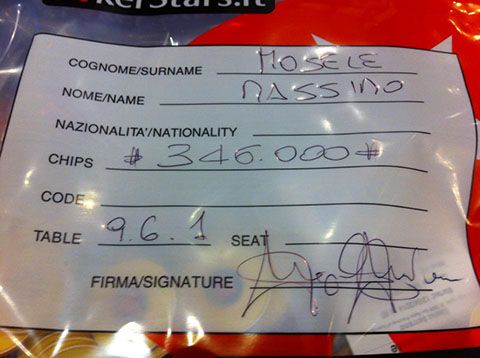 kerStars.it
COGNOME/SURNAME MOSELE
NOME/NAME MASSIMO
NAZIONALITA'/NATIONALITY
CHIPS # 346.000 #
CODE
TABLE 9.6.1 SEAT
FIRMA/SIGNATURE